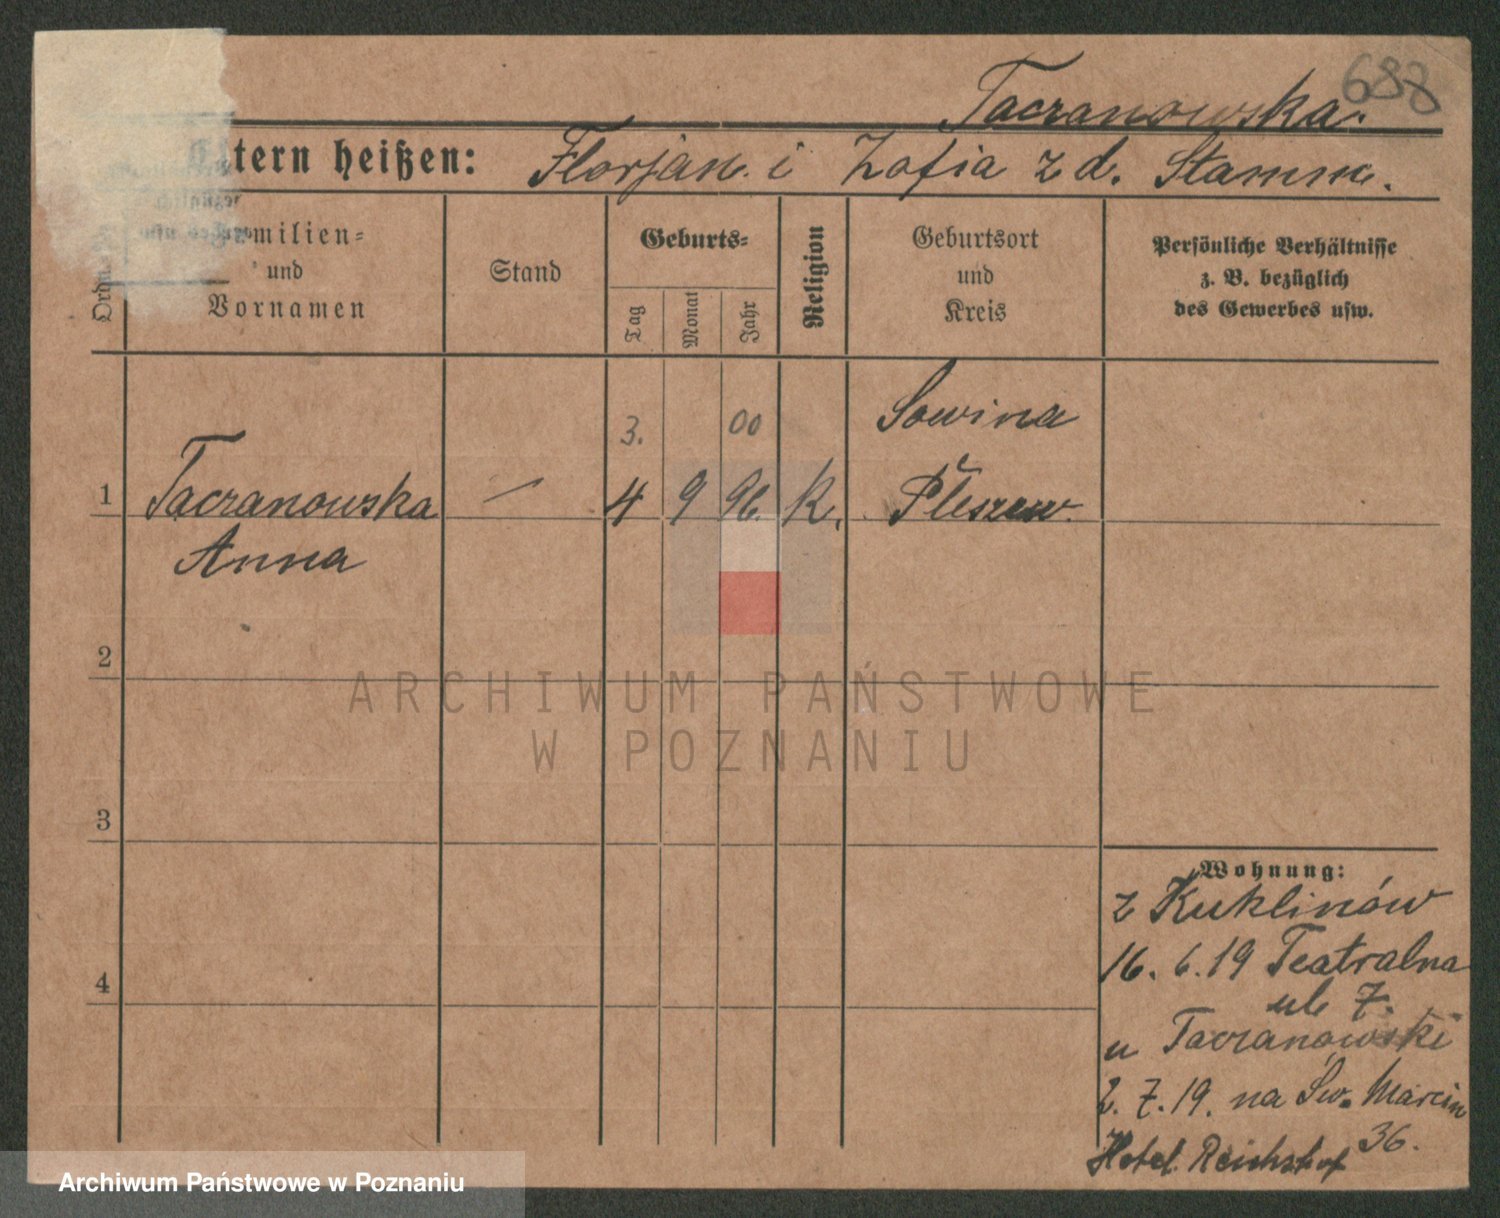 688
Taczanowska.
Eltern heißen: Florjan. i Zofia z d. Stamm.
Ordn.
Familien=
und
Vornamen
Stand
Geburts=
Tag
Monat
Jahr
Religion
Geburtsort
und
Kreis
Persönliche Verhältnisse
z. B. bezüglich
des Gewerbes usw.
3. 00 Sowina
1 Taczanowska — 4 9 96. K. Pleszew.
Anna
2
ARCHIWUM PAŃSTWOWE
W POZNANIU
3
4
Wohnung:
z Kuklinów
16. 6. 19 Teatralna
ul. 7.
u Taczanowski
2. 7. 19. na Św. Marcin
36.
Hotel Reichshof
Archiwum Państwowe w Poznaniu